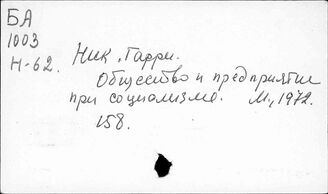 БА
1003
Н-62.
Ник, Гарри.
Общество и предприятие
при социализме. М., 1972.
158.